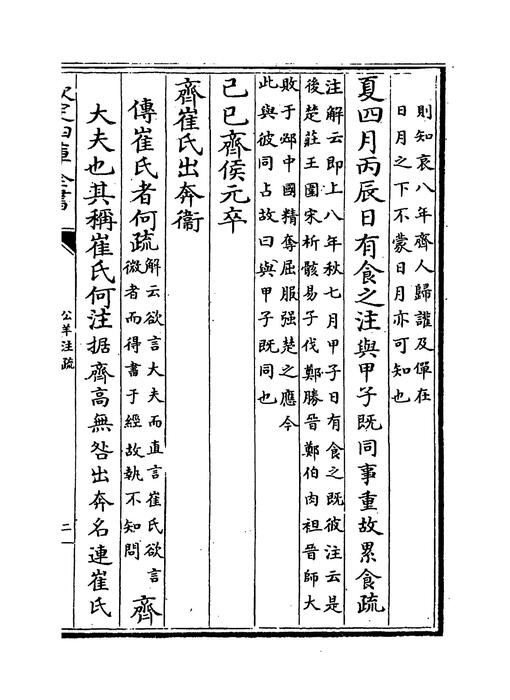 則知哀八年齊人歸讙及僤在
日月之下不蒙日月亦可知也
夏四月丙辰日有食之注與甲子既同事重故累食疏
注解云即上八年秋七月甲子日有食之既彼注云是
後楚莊王圍宋析骸易子伐鄭勝晉鄭伯肉袒晉師大
敗于邲中國精奪屈服强楚之應今
此與彼同占故曰與甲子既同也
己巳齊侯元卒
齊崔氏出奔衞
傳崔氏者何疏解云欲言大夫而直言崔氏欲言
微者而得書于經故執不知問齊
大夫也其稱崔氏何注据齊高無咎出奔名連崔氏
欽定四庫全書
公羊注疏
二